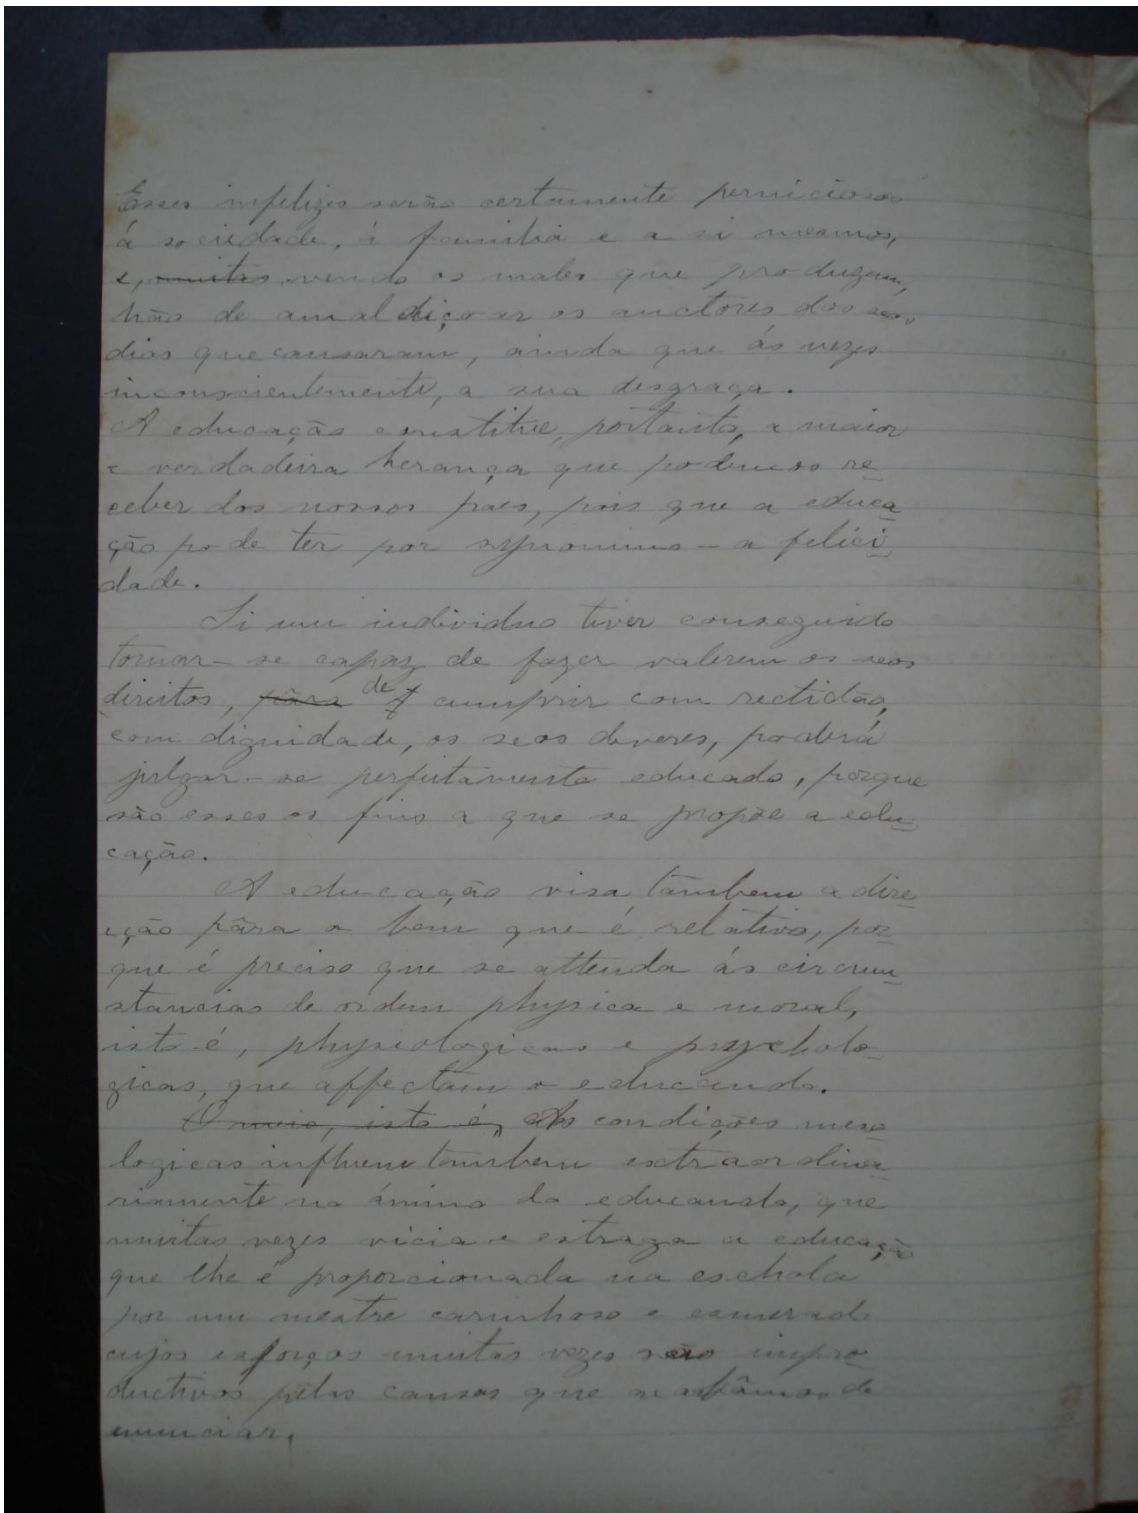 Esses infelizes serão certamente perniciosos
á sociedade, á familia e a si mesmos,
e, muitas vendo os males que produzem,
hão de amaldiçoar os auctores dos seos
dias que causaram, ainda que ás vezes
inconscientemente, a sua desgraça.
A educação constitue, portanto, a maior
e verdadeira herança que podemos re
ceber dos nossos paes, pois que a educa
ção pode ter por synonimo - a felici
dade.
Si um individuo tiver conseguido
tornar-se capaz de fazer valerem os seos
direitos, pára de cumprir com rectidão,
com dignidade, os seos deveres, poderá
julgar-se perfeitamente educado, porque
são esses os fins a que se propõe a edu
cação.
A educação visa tambem a dire
cção pâra o bem que é relativo, por
que é preciso que se attenda ás circum
stancias de ordem physica e moral,
isto é, physiologicas e psycholo
gicas, que affectam o educando.
O meio, isto é, As condições meso
logicas influem tambem extraordina
riamente no ánimo do educando, que
muitas vezes vicia e estraga a educação
que lhe é proporcionada na eschola
por um mestre carinhoso e esmerado
cujos esforços muitas vezes são impro
ductivos pelas causas que acabâmos de
enunciar.